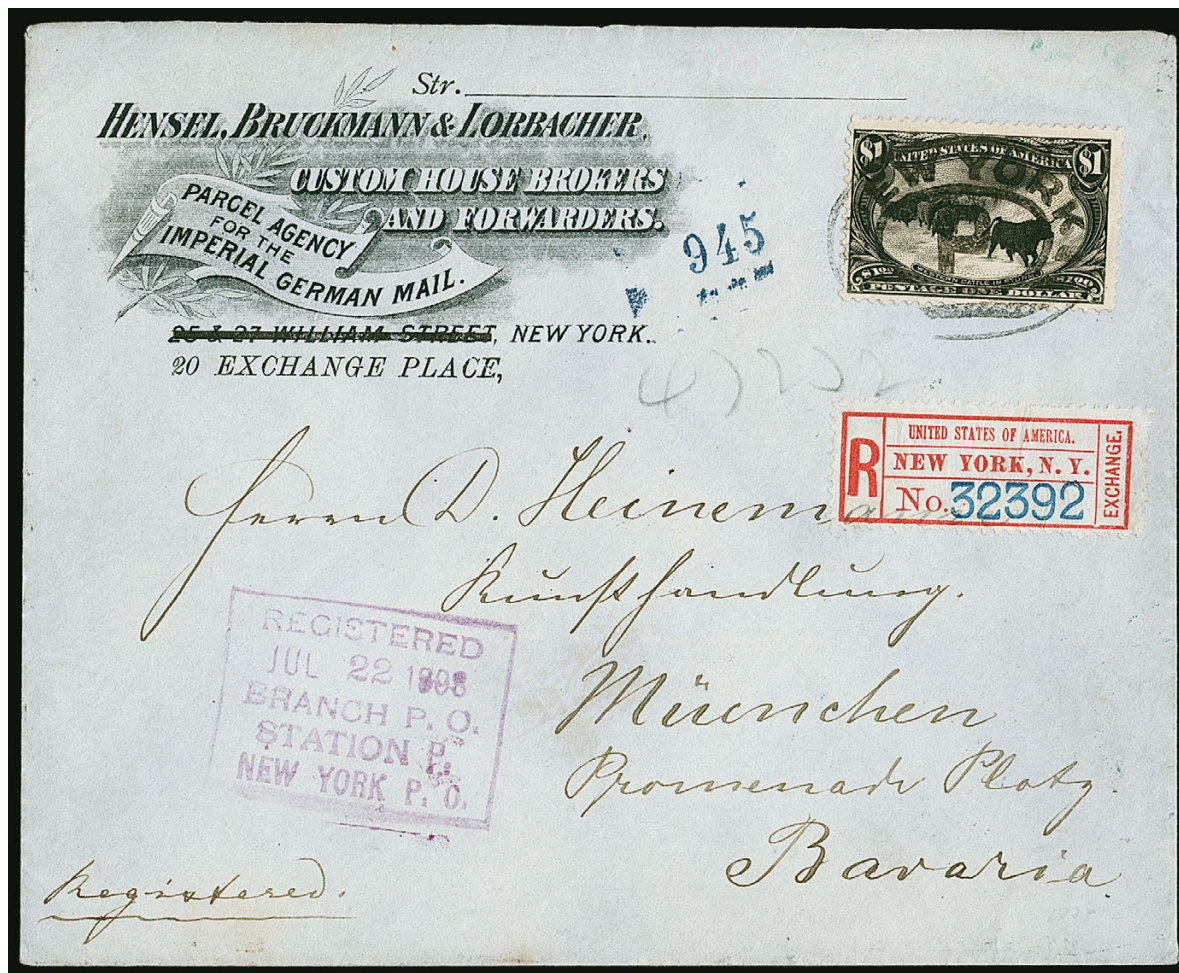 Str.
HENSEL, BRUCKMANN & LORBACHER,
CUSTOM HOUSE BROKERS
AND FORWARDERS.
PARCEL AGENCY
FOR THE
IMPERIAL GERMAN MAIL.
25 & 27 WILLIAM STREET, NEW YORK.
20 EXCHANGE PLACE,
945
$1 UNITED STATES OF AMERICA $1
NEW YORK
P
POSTAGE ONE DOLLAR
R
UNITED STATES OF AMERICA.
NEW YORK, N. Y.
No. 32392
EXCHANGE.
Herrn D. Heinemann
Kunsthandlung.
München
Promenade Platz.
Bavaria
REGISTERED
JUL 22 1898
BRANCH P. O.
STATION P.
NEW YORK P. O.
Registered.